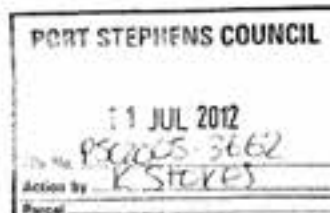 PORT STEPHENS COUNCIL
1 JUL 2012
File No. PSC2005-3662
Action by K STOKES
Parcel